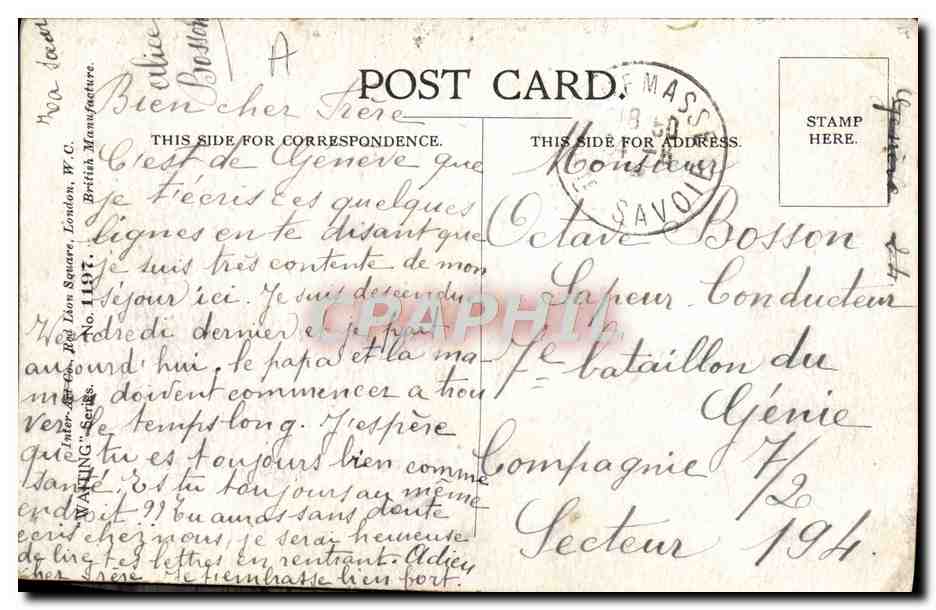 POST CARD.
THIS SIDE FOR CORRESPONDENCE.
THIS SIDE FOR ADDRESS.
STAMP
HERE.
Bien cher Frère
C'est de Genève que
je t'écris ces quelques
lignes en te disant que
je suis très contente de mon
séjour ici. Je suis descendu
Vendredi dernier et je part
aujourd'hui. le papa et la ma
man doivent commencer a trou
ver le temps long. J'espère
que tu es toujours bien comme
santé. Es tu toujours au même
endroit ?? Tu auras sans doute
écris chez nous, je serai heureuse
de lire tes lettres en rentrant. Adieu
cher Frère Je t'embrasse bien fort.
Ta sœur
alice
Bosson
A
Monsieur
Octave Bosson
Sapeur Conducteur
7e bataillon du
Génie
Compagnie 7/2
Secteur 194.
Genève 24
EMASSE
SAVOIE
Inter-Art Co., Red Lion Square, London, W.C.
British Manufacture.
"WAITING" Series. No. 1197.
CPARPHIL